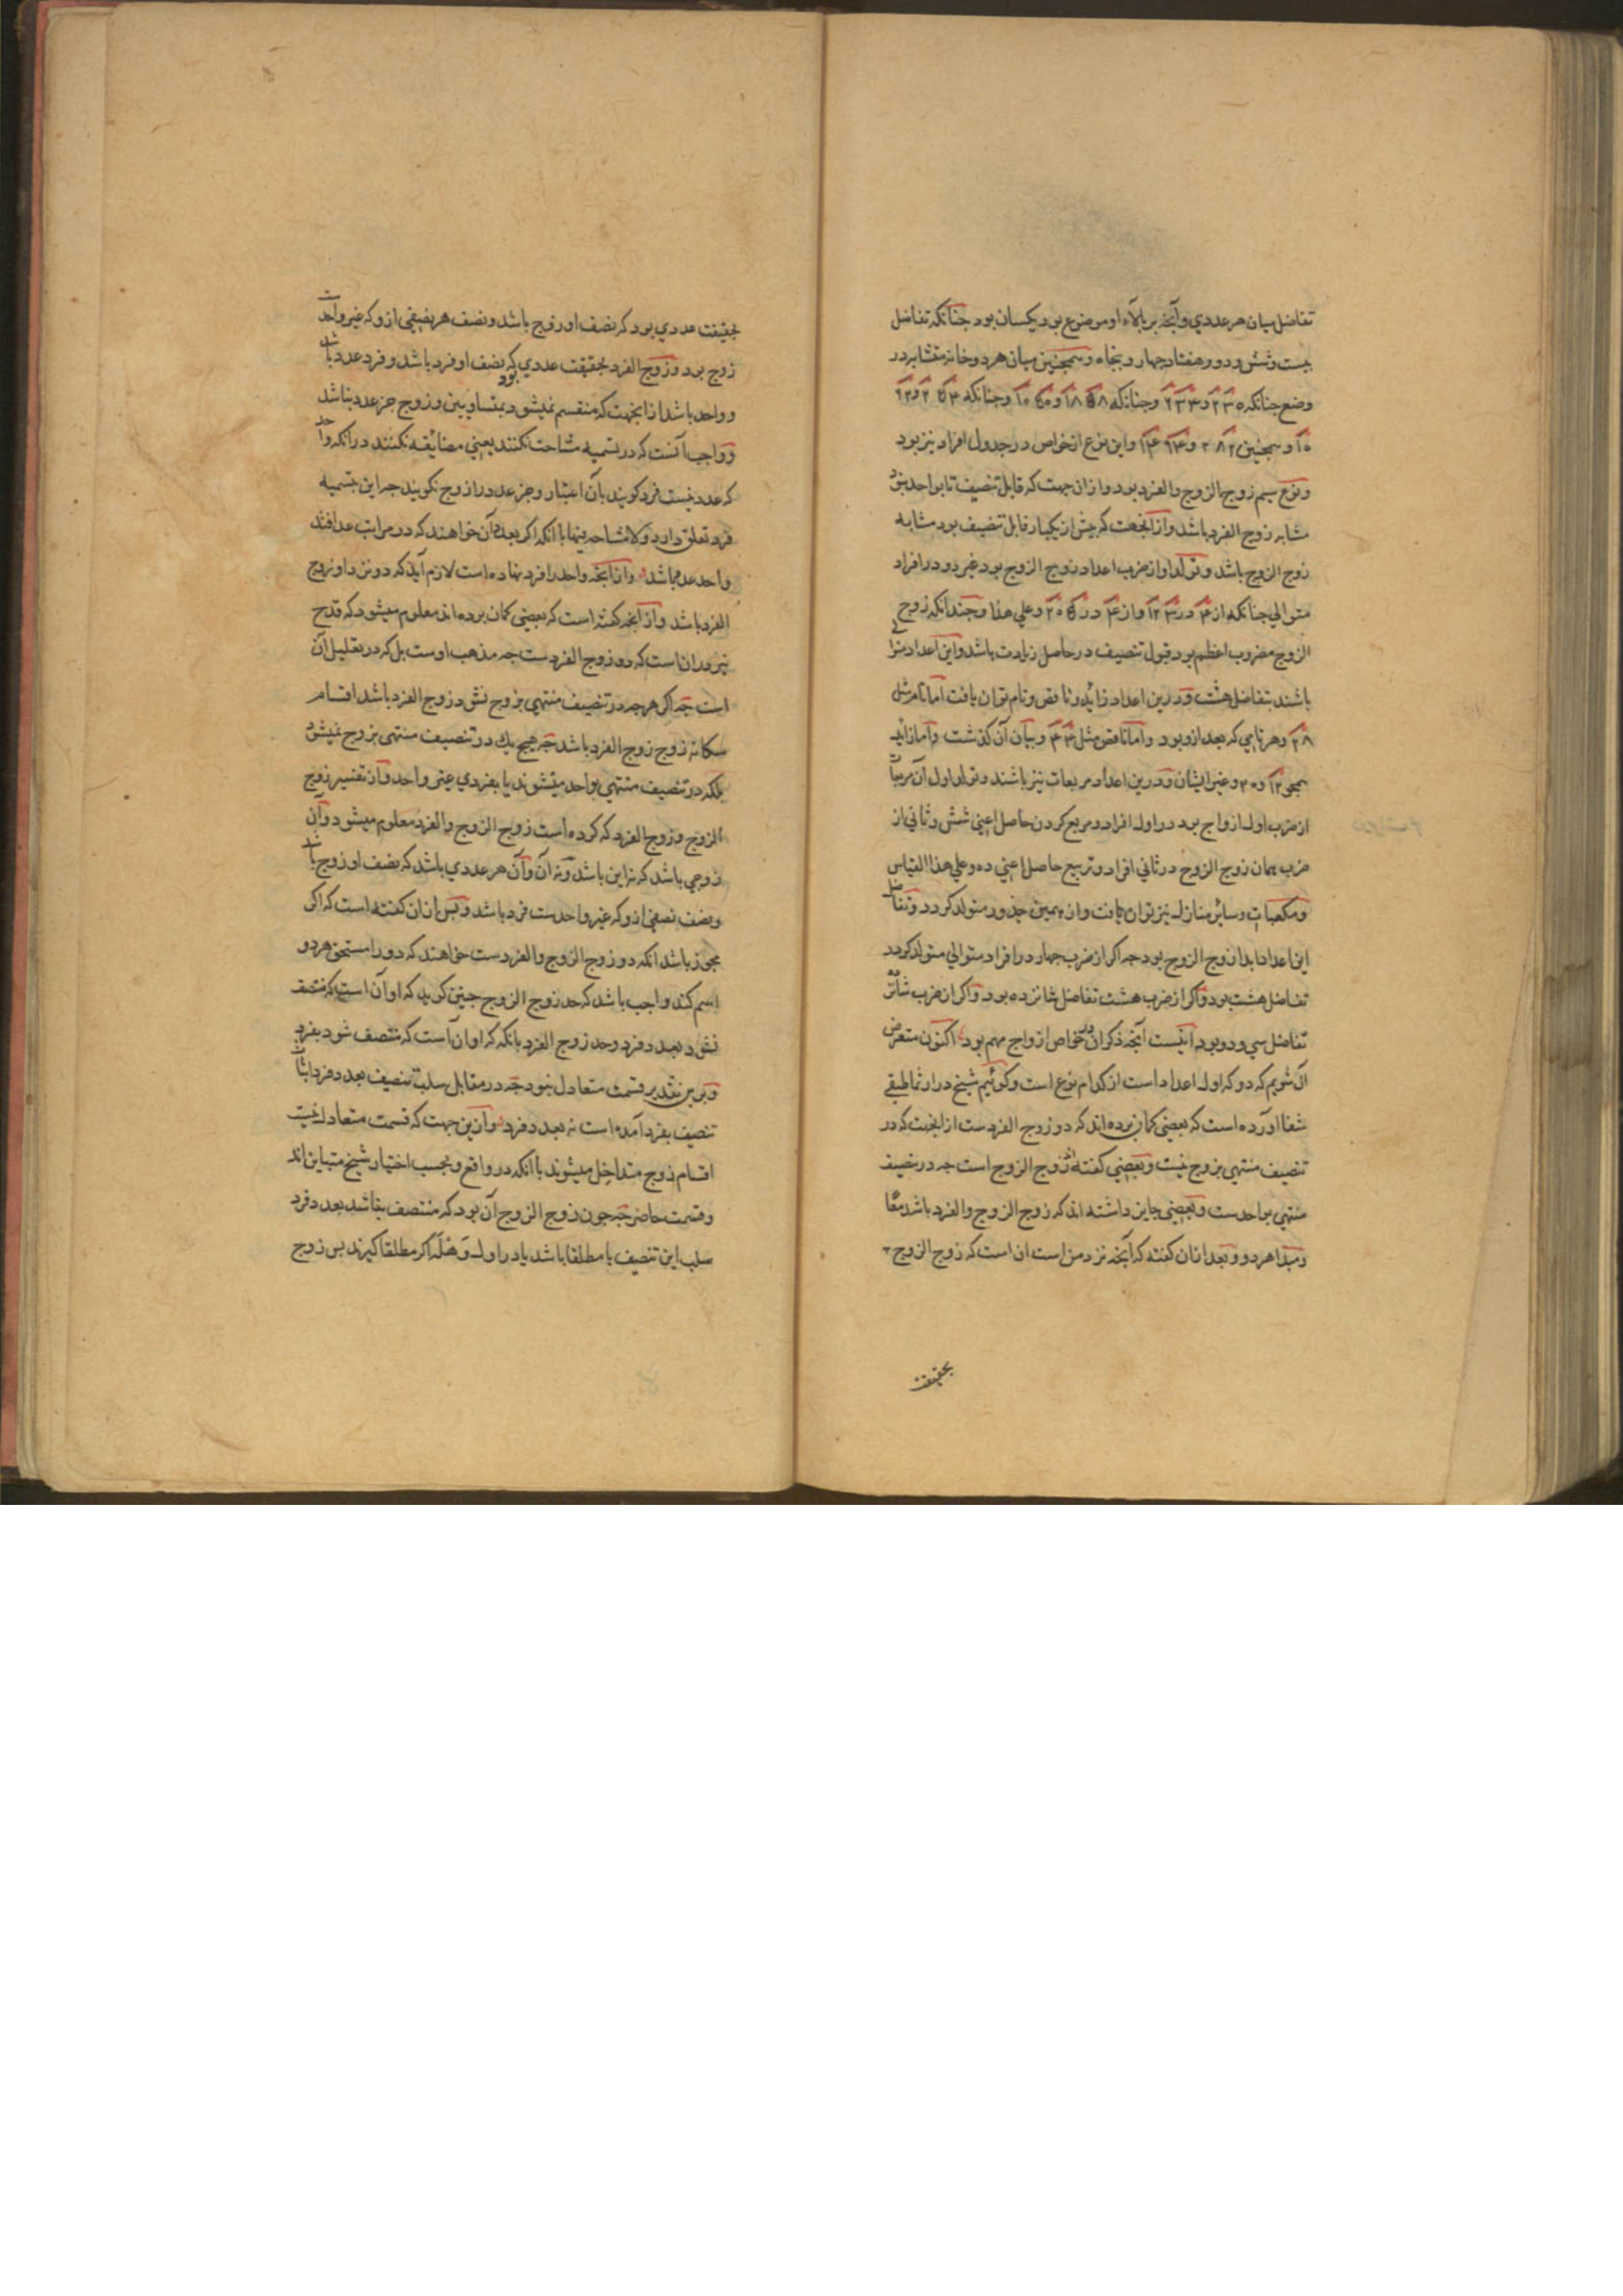 تفاضل میان هر عددی و آنچه بر بالاء او موضوع بود یکسان بود جنانکه تفاضل
بیست وشش ودو وهفتاد جهار و بنجاه وهمجنین میان هر دو خانه متشابه در
وضع جنانکه
و همجنین واین نوع از خواص در جدول افراد نیز بود
ونوع سیم زوج الزوج والفرد بود واز ان جهت که قابل تنصیف تا بواحد نبود
مشابه زوج الفرد باشد واز آنجهت که بیش از یکبار قابل تنصیف بود مشابه
زوج الزوج باشد وتولد او از ضرب اعداد زوج الزوج بود غیر دو در افراد
متوالی جنانکه از در واز در وعلی هذا وجندانکه زوج
الزوج مضروب اعظم بود قبول تنصیف در حاصل زیادت باشد واین اعداد متوالی
باشند بتفاضل هشت ودرین اعداد زائد وناقص وتام توان یافت اما تام مثل
۲۸ وهر تامی که بعد ازو بود واما ناقص مثل وبیان آن کذشت واما زاید
همجو وغیر ایشان ودرین اعداد مربعات نیز باشند وتولد اول آن مربعات
از ضرب اول ازواج بود در اول افراد ومربع کردن حاصل اعنی شش وثانی از
ضرب همان زوج الزوج در ثانی افراد وتربیع حاصل اعنی ده وعلی هذا القیاس
ومکعبات وسائر منازل نیز توان یافت واز همین جذور متولد کردد وتفاضل
این اعداد ابدا زوج الزوج بود جه اکر از ضرب جهار در افراد متوالی متولد کردد
تفاضل هشت بود واکر از ضرب هشت تفاضل شانزده بود واکر از ضرب شانزده
تفاضل سی ودو بود اینست آنجه ذکر ان در خواص ازواج مهم بود اکنون متعرض
آن شویم که دو که اول اعداد است از کدام نوع است وکوئیم شیخ در ارثماطیقی
شفا آورده است که بعضی کمان برده اند که دو زوج الفردست از انجهت که در
تنصیف منتهی بزوج نیست وبعضی کفته اند زوج الزوج است جه در تنصیف
منتهی بواحدست وبعضی جایز داشته اند که زوج الزوج والفرد باشد معا
ومبدا هر دو وبعد ازان کفته که آنجه نزد من است ان است که زوج الزوج
بحقیقت
بحقیقت عددی بود که نصف او زوج باشد ونصف هر نصفی ازو که غیر واحدست
زوج بود وزوج الفرد بحقیقت عددی بود که نصف او فرد باشد وفرد عدد باشد
وواحد باشد از انجهت که منقسم نمیشود بمتساویین وزوج جز عدد نباشد
وواجب آنست که در تسمیه مشاحت نکنند یعنی مضائقه نکنند در انکه واحد
که عدد نیست فرد کویند بآن اعتبار وجز عدد را زوج نکویند جه این بتسمیه
فرد تعلق دارد ولا مشاحه فیها با انکه اکر بعدد آن خواهند که در مراتب عد افتد
واحد عدد باشد واز آنجه واحد را فرد نهاده است لازم آید که دو نزد او زوج
الفرد باشد واز آنجه کفته است که بعضی کمان برده اند معلوم میشود که قدح
نه در ان است که دو زوج الفردست جه مذهب اوست بل که در تعلیل آن
است جه اکر هر جه در تنصیف منتهی بزوج نشود زوج الفرد باشد اقسام
سکانه زوج زوج الفرد باشد جه هیج یک در تنصیف منتهی بزوج نمیشود
بلکه در تنصیف منتهی بواحد میشوند یا بفردی غیر واحد واز تفسیر زوج
الزوج وزوج الفرد که کرده است زوج الزوج والفرد معلوم میشود وآن
زوجی باشد که نه این باشد ونه آن وآن هر عددی باشد که نصف او زوج باشد
ونصف نصفی ازو که غیر واحدست فرد باشد وبس ازان کفته است که اکر
مجوز باشد انکه دو زوج الزوج والفردست خواهند که دو را مستحق هر دو
اسم کند واجب باشد که حد زوج الزوج جنین کوید که او آن است که منتصف
نشود بعدد فرد وحد زوج الفرد بانکه او ان است که منتصف شود بفرد
وبرین تقدیر قسمت متعادل نبود جه در مقابل سلب تنصیف بعدد فرد اثبات
تنصیف بفرد آمده است نه بعدد فرد وازین جهت که قسمت متعادل نیست
اقسام زوج متداخل میشوند با انکه در واقع وبحسب اختیار شیخ متباین اند
وقسمت حاضر جه جون زوج الزوج آن بود که منتصف نباشد بعدد فرد
سلب این تنصیف یا مطلقا باشد یا در اول وهله اکر مطلقا کیرند بس زوج